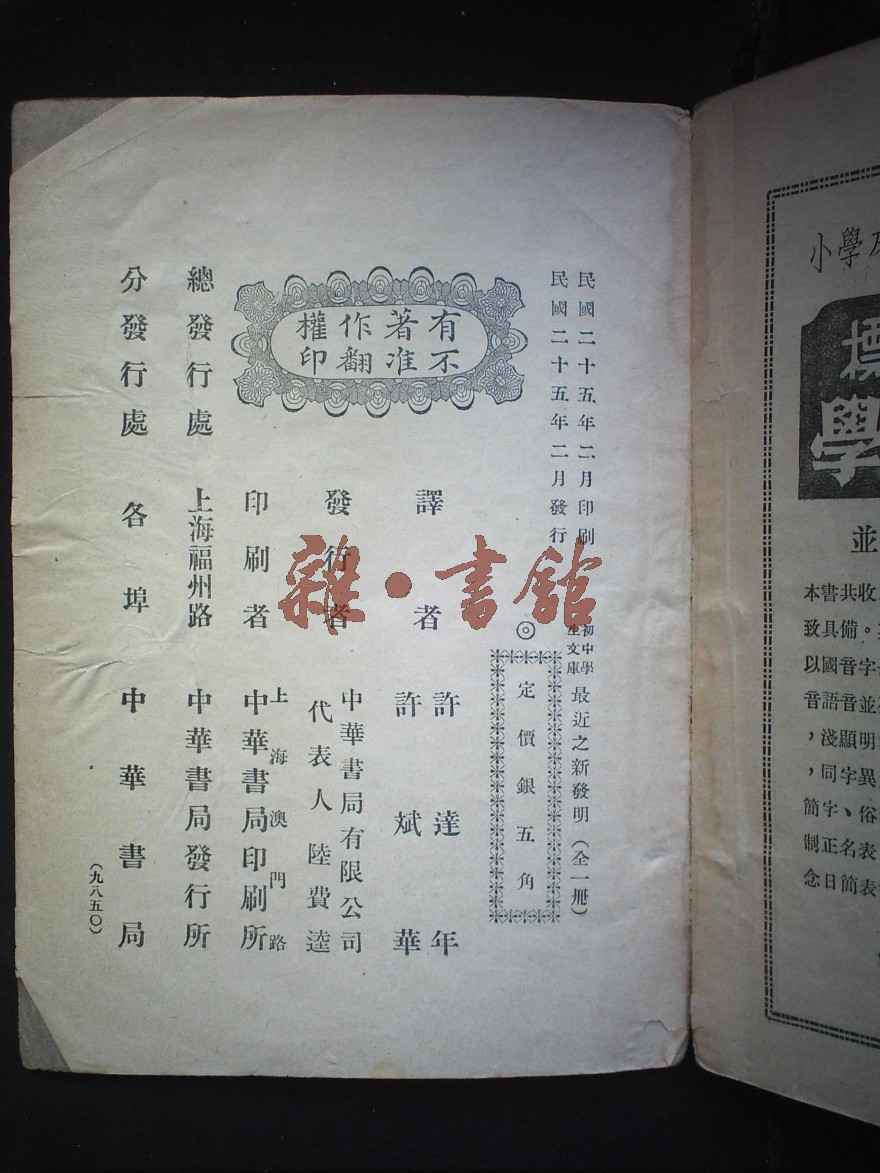 民國二十五年二月印刷
民國二十五年二月發行
初中學生文庫
最近之新發明（全一册）
◎
定價銀五角
有著作權
不准翻印
譯者
許達年
許斌華
發行者
中華書局有限公司
代表人陸費逵
印刷者
上海澳門路
中華書局印刷所
總發行處
上海福州路
中華書局發行所
分發行處
各埠中華書局
（九八五〇）
雜·書館
小學
標
學
並
本書共收
致具備。
以國音字
音語音並
，淺顯明
，同字異
簡字、俗
制正名表
念日簡表